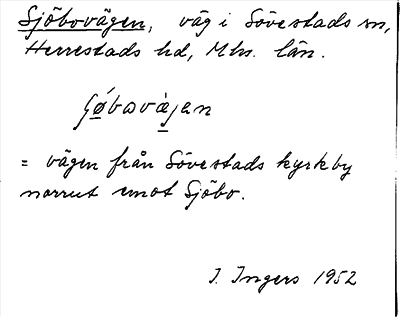 Sjöbovägen, väg i Sövestads sn,
Herrestads hd, Mhs. län.
ʃǿbovàjen
= vägen från Sövestads kyrkby
norrut emot Sjöbo.
I. Ingers 1952